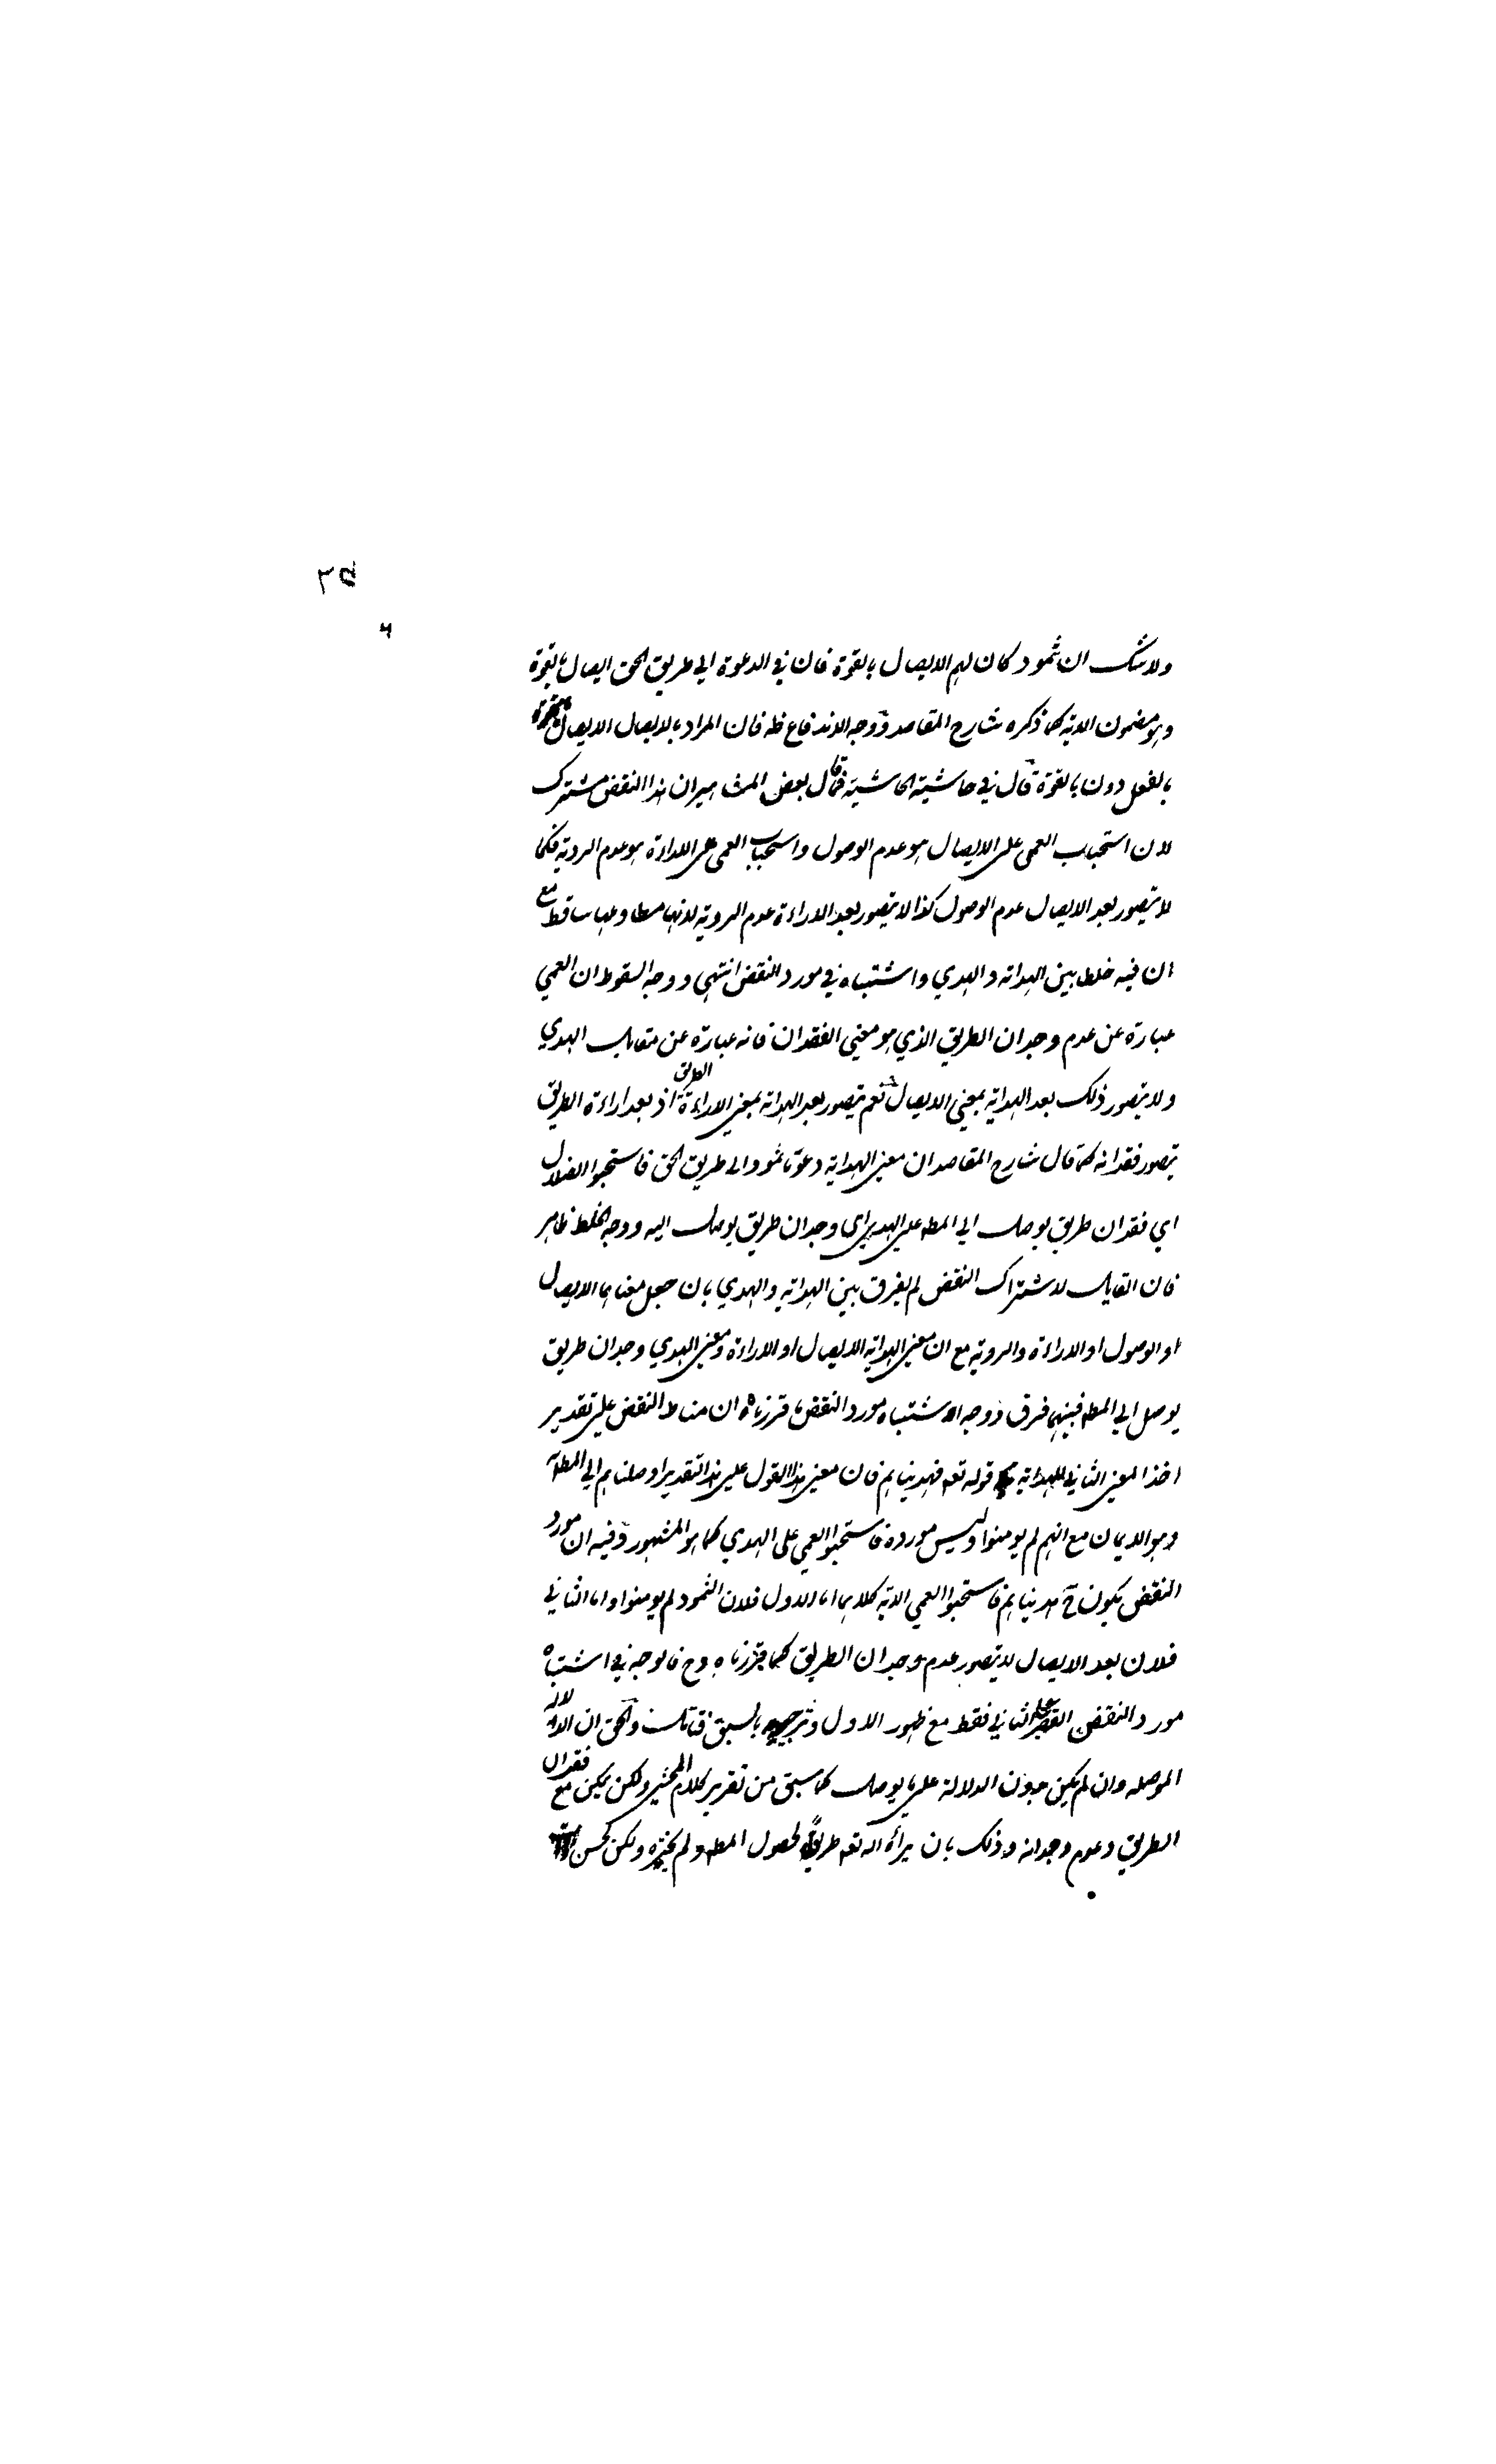 ٢٥
ولا شك ان ثمود كان لهم الايصال بالقوة فان في الدعوة الي طريق الحق ايصال بالقوة
وهو مضمون الاية كما ذكره شارح المقاصد ووجه الاندفاع ظ فان المراد بالايصال الايصال
بالفعل دون بالقوة قال في حاشية الحاشية فما قال بعض المشاهير ان هذا النقض مشترك
لان استحباب العمى على الايصال هو عدم الوصول واستحباب العمى على الاراءة هو عدم الروية فكما
لا يتصور بعد الايصال عدم الوصول كذا لا يتصور بعد الاراءة عدم الروية لانهما مطاوعها ساقط مع
ان فيه خلط بين الهداية والهدي واشتباه في مورد النقض انتهي ووجه السقوط ان العمي
عبارة عن عدم وجدان الطريق الذي هو معني الفقدان فانه عبارة عن مقابل الهدي
ولا يتصور ذلك بعد الهداية بمعني الايصال نعم يتصور بعد الهداية بمعني الاراءة الطريق اذ بعد اراءة الطريق
يتصور فقدانه كما قال شارح المقاصد ان معني الهداية دعونا ثمود الى طريق الحق فاستحبوا الضلال
اي فقدان طريق يوصل الي المط علي الهدي اي وجدان طريق يوصل اليه ووجه الخلط ظاهر
فان القايل لاشتراك النقض لم يفرق بين الهداية والهدي بان جعل معناهما الايصال
او الوصول او الاراءة والروية مع ان معني الهداية الايصال او الاراءة ومعني الهدي وجدان طريق
يوصل الي المط فبينهما فرق ووجه الاشتباه مورد النقض ما قررناه ان مناط النقض علي تقدير
اخذ المعني الثاني للهداية قوله تعه فهديناهم فان معني هذا القول علي هذا التقدير اوصلناهم الي المط
وهو الايمان مع انهم لم يومنوا وليس مورده فاستحبوا العمي على الهدي كما هو المشهور وفيه ان مورد
النقض يكون ح هديناهم فاستحبوا العمي الاية كلاهما اما الاول فلان الثمود لم يومنوا واما الثاني
فلان بعد الايصال لا يتصور عدم وجدان الطريق كما قررناه وح فالوجه في اشتباه
مورد النقض القصر على الثاني فقط مع ظهور الاول وترجيحه بالسبق فتامل والحق ان الدلالة
الموصله وان لم يكن بدون الدلالة علي ما يوصل كما سبق من تقرير كلام المحشي ولكن يمكن مع فقدان
الطريق وعدم وجدانه وذلك بان يراه الله تعه طريقا لحصول المط ولم يخبره ولكن